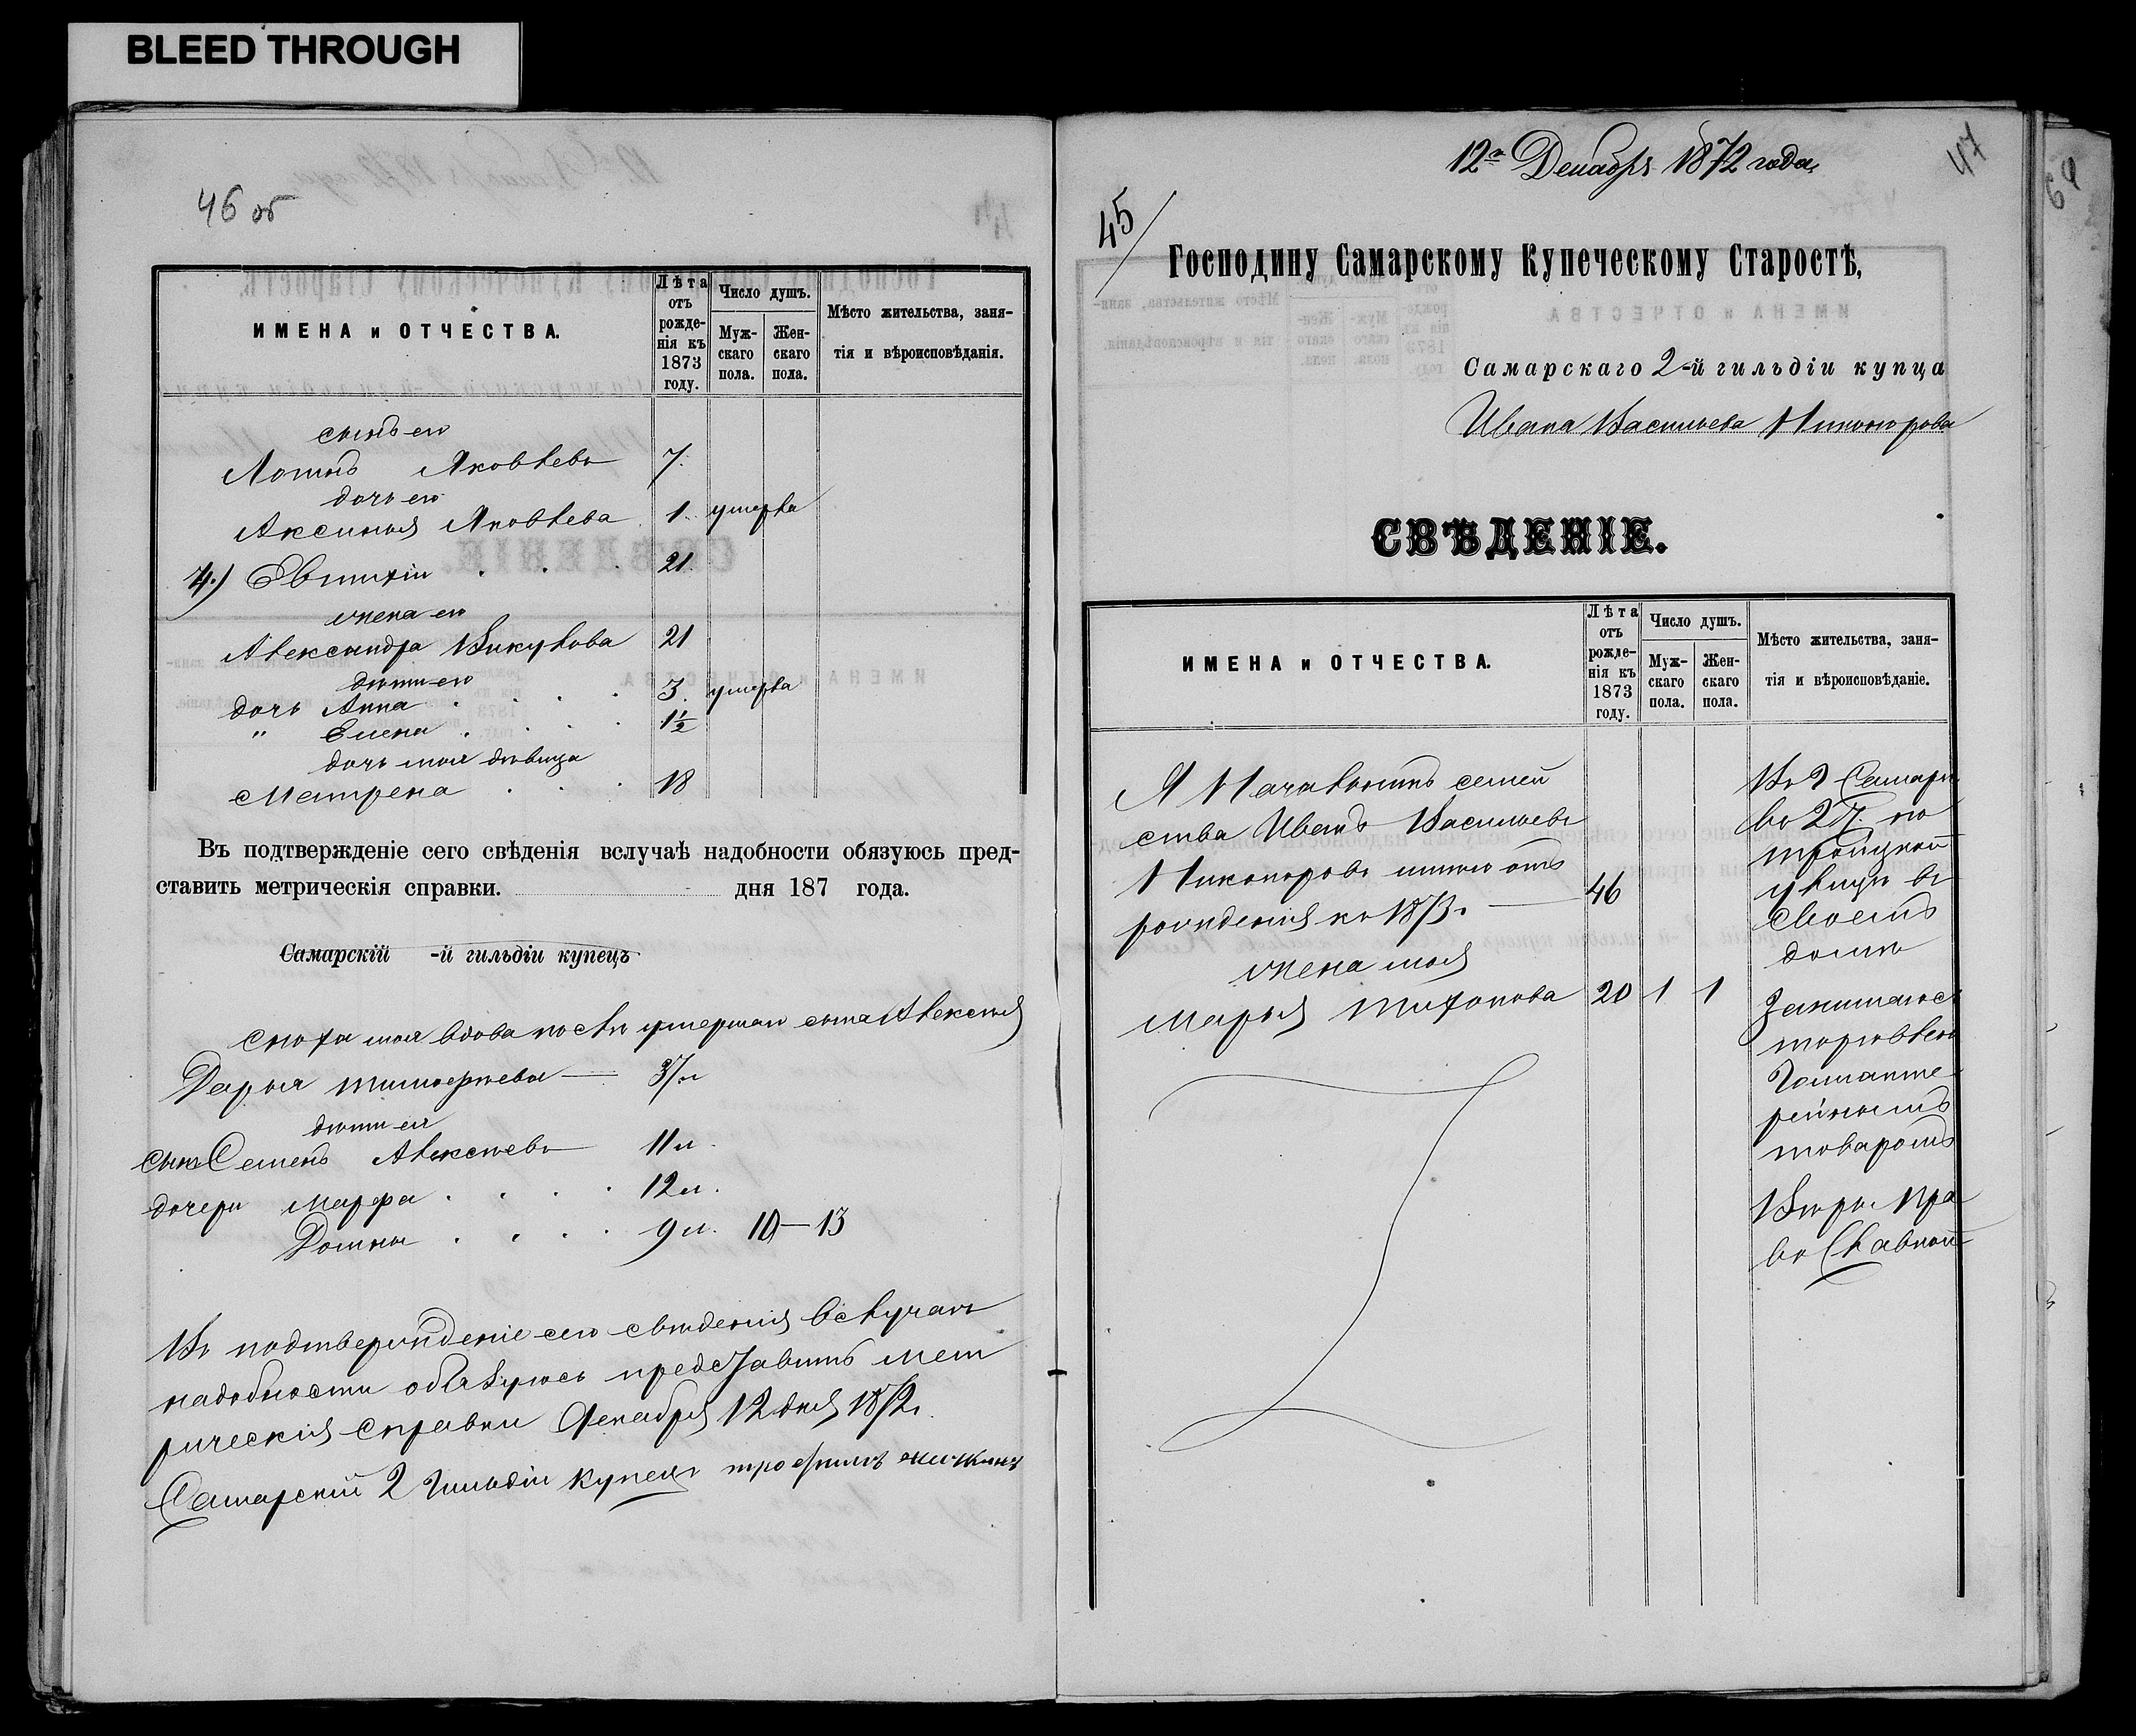 BLEED THROUGH
46 об
ИМЕНА и ОТЧЕСТВА.
Лѣта отъ рожденія къ 1873 году.
Число душъ.
Мужскаго пола.
Женскаго пола.
Мѣсто жительства, занятія и вѣроисповѣданія.
сынъ его
Логинъ Яковлевъ 7.
дочь его
Аксинья Яковлева 1 умерла
4.) Евтихiи 21
жена его
Александра Викулова 21
дѣти его
дочь Анна 3. умерла
" Елена 1½
дочь моя дѣвица
Матрена 18
Въ подтвержденіе сего свѣденія вслучаѣ надобности обязуюсь пред-
ставить метрическія справки. дня 187 года.
Самарскій -й гильдіи купецъ
сноха моя вдова послѣ умершаго сына Алексѣя
Дарья Тимофеева
дѣти ея
сынъ Семенъ Алексѣевъ 11 л.
дочери Марфа 12 л.
Домна 9 л. 10—13
Въ подтвержденіе сего свѣденія вслучаѣ
надобности обязуюсь представить мет
рическія справки Декабря 12 дня 1872 г.
Самарскій 2 гильдіи купецъ трофимъ
12го Декабря 1872 года.
47
69
45
Господину Самарскому Купеческому Старостѣ,
Самарскаго 2-й гильдіи купца
Ивана Васильева Никонорова
СВѢДЕНІЕ.
ИМЕНА и ОТЧЕСТВА.
Лѣта отъ рожденія къ 1873 году.
Число душъ.
Мужскаго пола.
Женскаго пола.
Мѣсто жительства, занятія и вѣроисповѣданіе.
Я Начальникъ семей
ства Иванъ Васильевъ
Никоноровъ имѣю отъ
рожденія къ 1873 г. 46
жена моя
Марья Тихонова 20 1 1
Въ г Самарѣ
во 2 ч. по
троицкой
улицѣ въ
своемъ
домѣ
Занимаюсь
торговлею
Галанте
рейнымъ
товаромъ
Вѣры Пра
во Славной